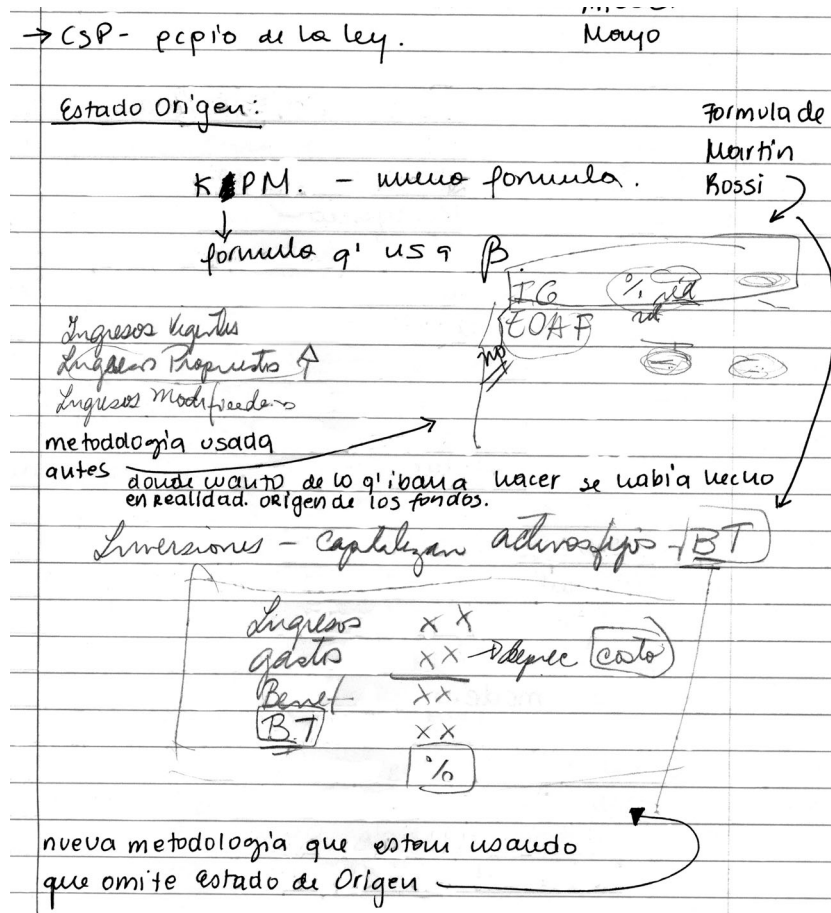 → CSP - pcpio de la ley.
Mayo
Estado Origen:
Formula de
Martin
Rossi
K PM. - nueva formula.
↓
formula q' usa β.
IG %
EOAF
no
Ingresos Vigentes
Ingresos Propuestos
Ingresos Modificados
metodología usada
antes
donde cuanto de lo q' iban a hacer se había hecho
en realidad. origen de los fondos.
Inversiones - Capitalizan activos fijos - BT
Ingresos XX
gastos XX → deprec costo
Benef XX
BT XX
%
nueva metodología que estan usando
que omite Estado de Origen